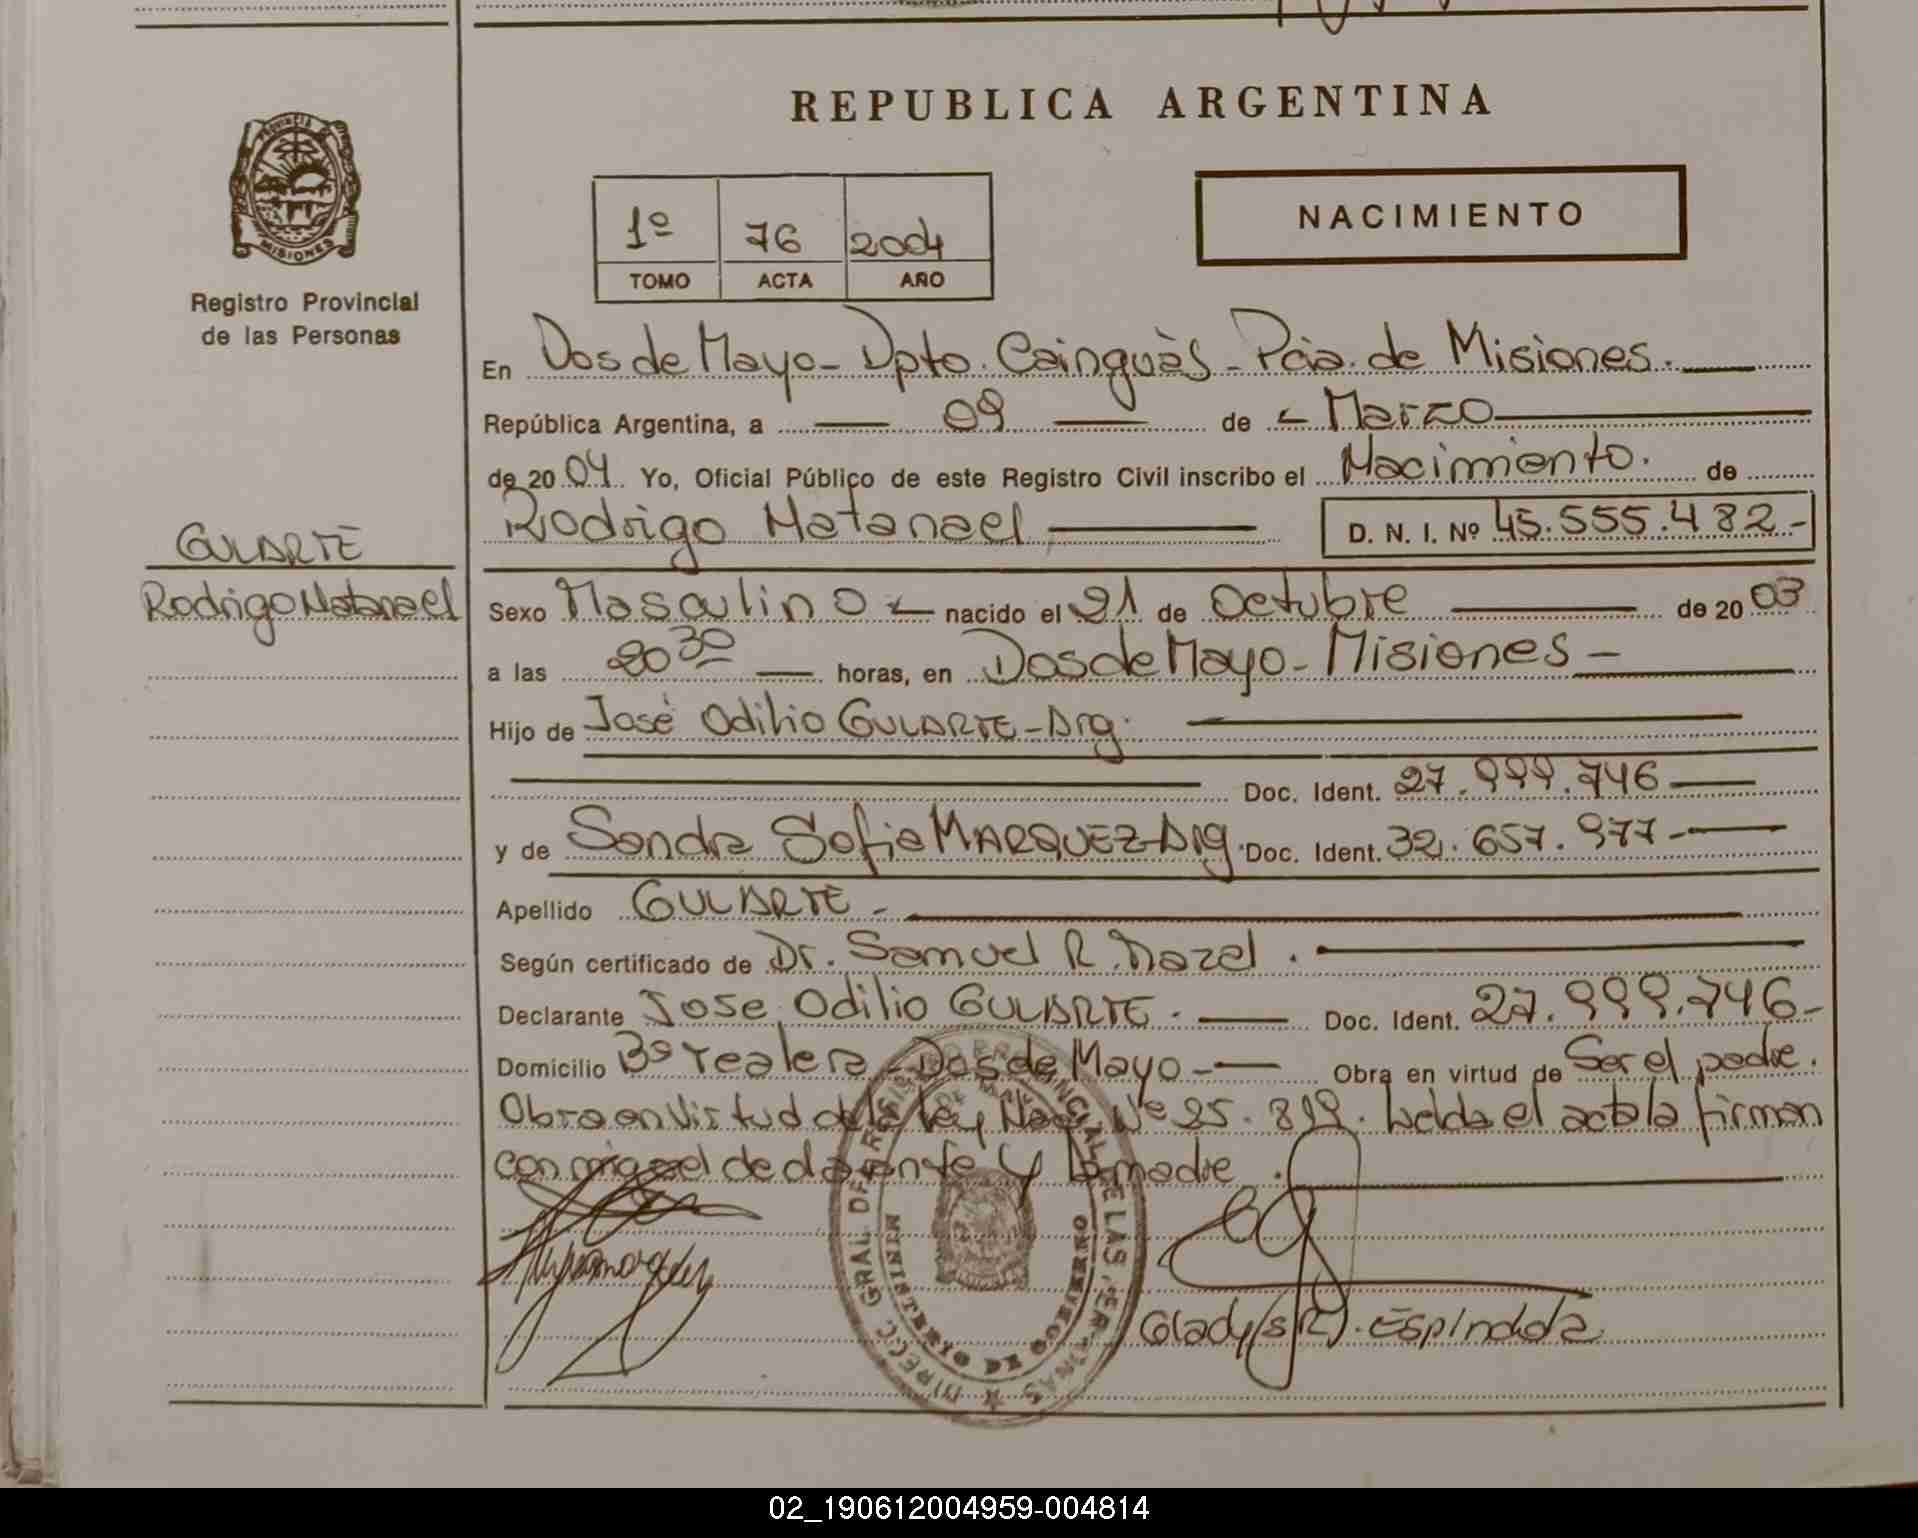 REPUBLICA ARGENTINA
PROVINCIA DE
MISIONES
Registro Provincial
de las Personas
NACIMIENTO
1º 76 2004
TOMO ACTA AÑO
En Dos de Mayo - Dpto. Cainguàs - Pcia. de Misiones.
República Argentina, a 09 de Marzo
de 20 04 Yo, Oficial Público de este Registro Civil inscribo el Nacimiento. de
Rodrigo Natanael D. N. I. Nº 45.555.482.-
GULARTE
Rodrigo Natanael
Sexo Masculino nacido el 21 de Octubre de 20 03
a las 20 30 horas, en Dos de Mayo - Misiones -
Hijo de José Odilio GULARTE - Arg.
Doc. Ident. 27.999.746
y de Sandra Sofia MARQUEZ - Arg. Doc. Ident. 32.657.977.-
Apellido GULARTE -
Según certificado de Dr. Samuel R.
Declarante Jose Odilio GULARTE. Doc. Ident. 27.999.746-
Domicilio Dos de Mayo - Obra en virtud de Ser el padre.
Obra en virtud de la Ley Nac. Nº 25.819. Leída el acta la firman
conmigo el declarante y la madre.
DIRECC. GRAL DE REGISTRO PROVINCIAL DE LAS PERSONAS
MINISTERIO DE GOBIERNO
Gladys R. Espindola
02_190612004959-004814